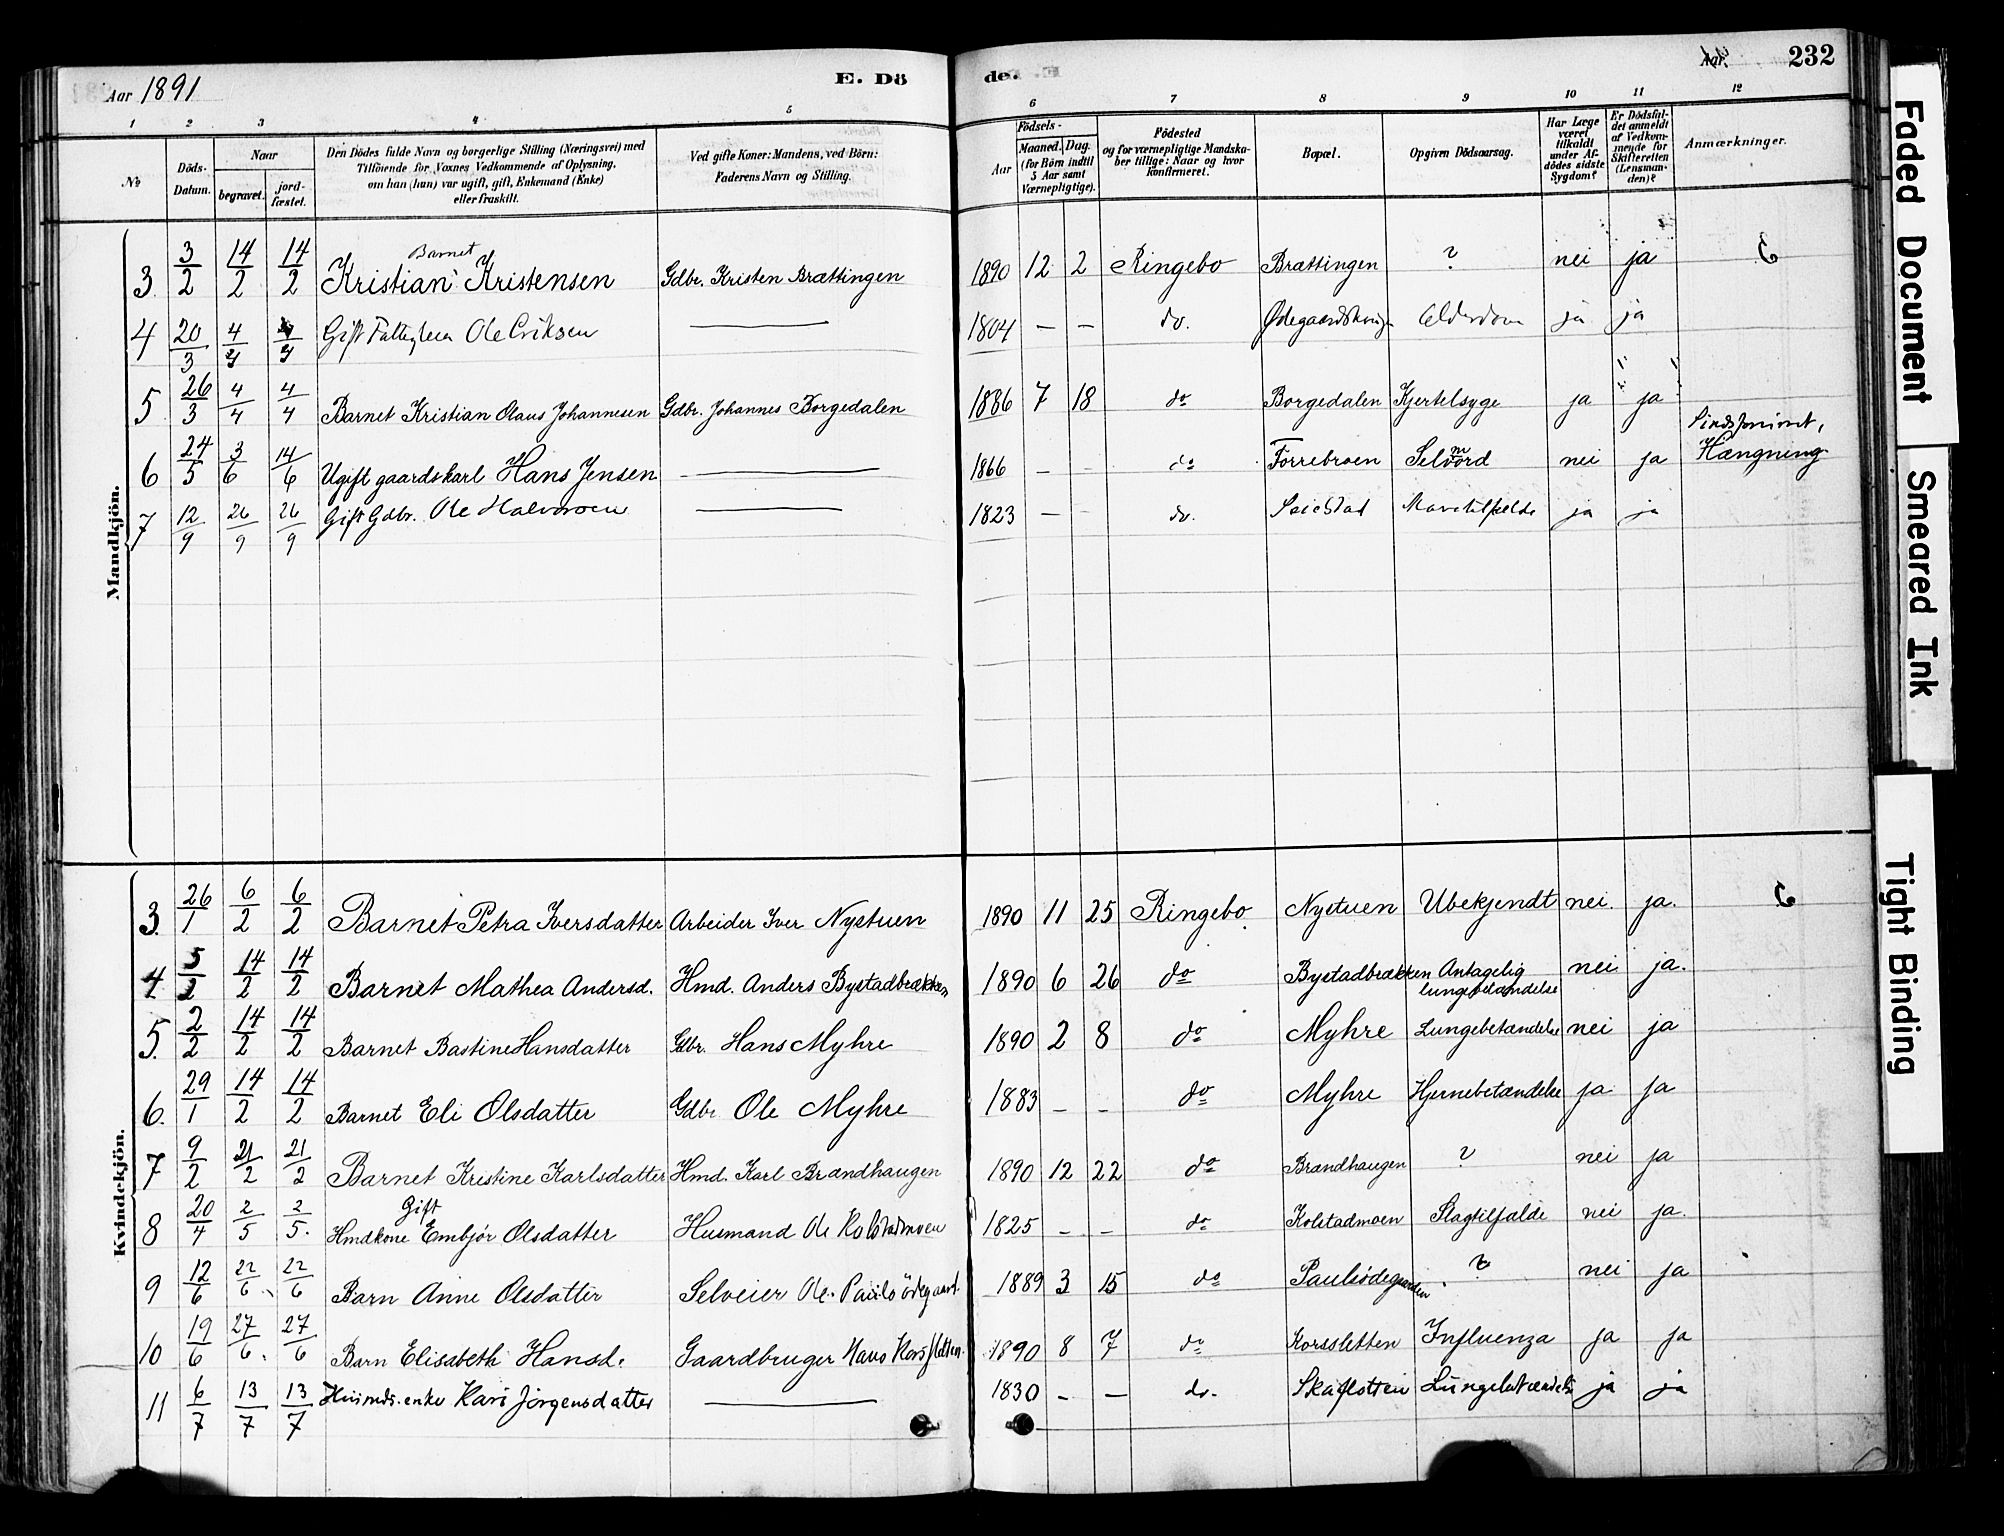 Aar 1891
E. Dö
de.
Aar.
232
1 2 3 4 5 6 7 8 9 10 11 12
No
Döds-Datum.
Naar
begravet.
jord-fæstet.
Den Dödes fulde Navn og borgerlige Stilling (Næringsvei) med
Tilföiende for Voxnes Vedkommende af Oplysning,
om han (hun) var ugift, gift, Enkemand (Enke)
eller fraskilt.
Ved gifte Koner: Mandens, ved Börn:
Faderens Navn og Stilling.
Födsels-
Aar
Maaned. Dag.
(for Börn indtil
5 Aar samt
Værnepligtige).
Födested
og for værnepligtige Mandska-
ber tillige: Naar og hvor
konfirmeret.
Bopæl.
Opgiven Dödsaarsag.
Har Læge
været
tilkaldt
under Af-
dödes sidste
Sygdom?
Er Dödsfal-
det anmeldt
af Vedkom-
mende for
Skifteretten
(Lensman-
den)?
Anmærkninger.
Mandkjön.
Barnet
3. 3/2 14/2 14/2 Kristian Kristensen Gdbr. Kristen Brættingen 1890 12 2 Ringebo Brættingen ? nei ja
4 20/3 4/4 4/4 Gift Ole Eriksen — 1804 — — do. Alderdom ja ja
5 26/3 4/4 4/4 Barnet Kristian Olaus Johannesen Gdbr. Johannes Borgedalen 1886 7 18 do Borgedalen Kjertelsyge ja ja
Sindsforvirret,
6 24/5 3/6 14/6 Ugift gaardskarl Hans Jensen — 1866 - - do Forrebroen Selvmord nei ja Hængning
7 12/9 26/9 26/9 Gift Gdbr. Ole Halvorsen — 1823 — — do. Mavetilfælde ja ja
Kvindekjön.
3. 26/1 6/2 6/2 Barnet Petra Iversdatter Arbeider Iver Nystuen 1890 11 25 Ringebo Nystuen Ubekjendt nei. ja.
4 5/2 14/2 14/2 Barnet Mathea Andersd. Hmd. Anders Bystadbrækken 1890 6 26 do Bystadbrækken Antagelig lungebetændelse nei ja.
5. 2/2 14/2 14/2 Barnet Bastine Hansdatter Gdbr. Hans Myhre 1890 2 8 do Myhre Lungebetændelse nei ja
6. 29/1 14/2 14/2 Barnet Eli Olsdatter Gdbr Ole Myhre 1883 - - do Myhre Hjernebetændelse ja ja
7 9/2 21/2 21/2 Barnet Kristine Karlsdatter Hmd. Karl Brændhaugen 1890 12 22 do Brændhaugen ? nei ja
Gift
8 20/4 2/5 2/5. Hmdkone Embjør Olsdatter Husmand Ole Kolstadmoen 1825 - - do Kolstadmoen Slagtilfælde nei ja.
9 12/6 22/6 22/6 Barn Anne Olsdatter Selveier Ole Paulsödegaard. 1889 3 15 do Paulsödegaarden ? nei ja
10 19/6 27/6. 27/6 Barn Elisabeth Hansd. Gaardbruger Hans Korssletten. 1890 8 7 do Korssletten Influenza ja ja
11 6/7 13/7 13/7 Husmds. enke Kari Jörgensdatter — 1830 - — do. Lungebetændelse ja ja
Faded Document
Smeared Ink
Tight Binding